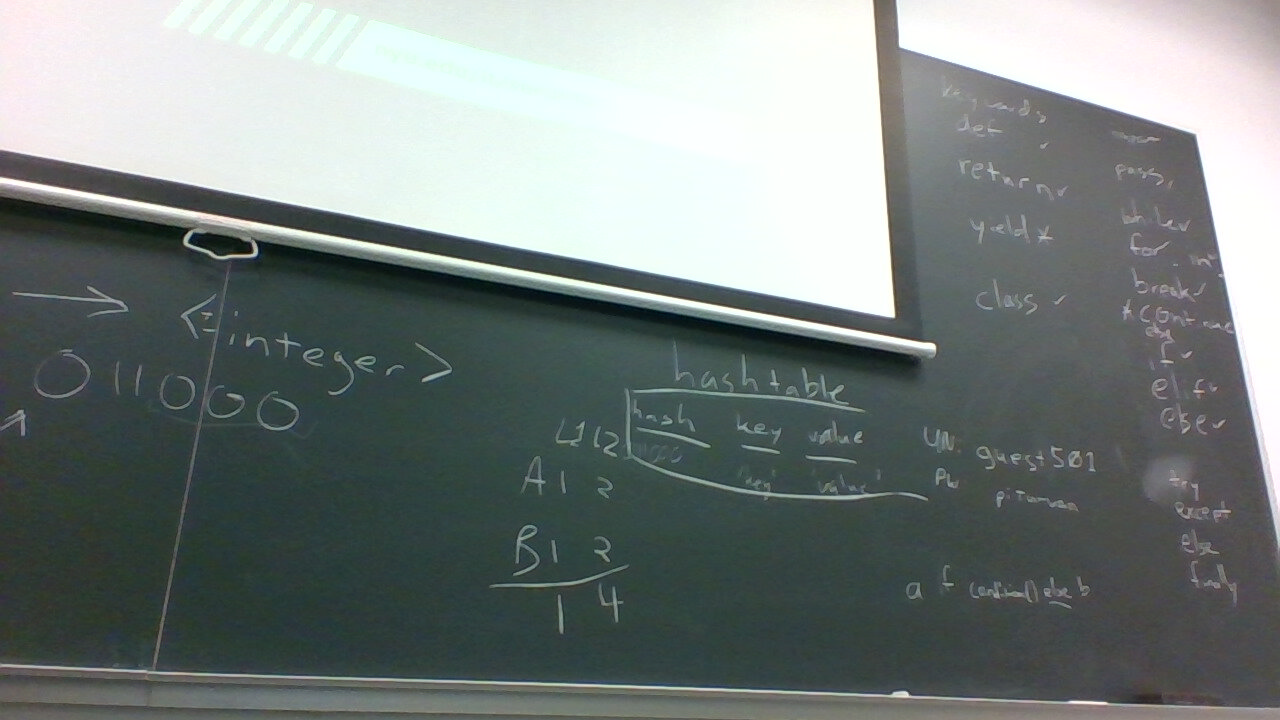 <integer>
011000
hashtable
hash key value
"key" "value"
A 1 2
B 1 2
1 4
UN: guest501
PW
a if else b
keywords
def
return ✓
yeld *
class ✓
pass
while ✓
for in
break ✓
if ✓
elif ✓
else ✓
try
except
else
finally